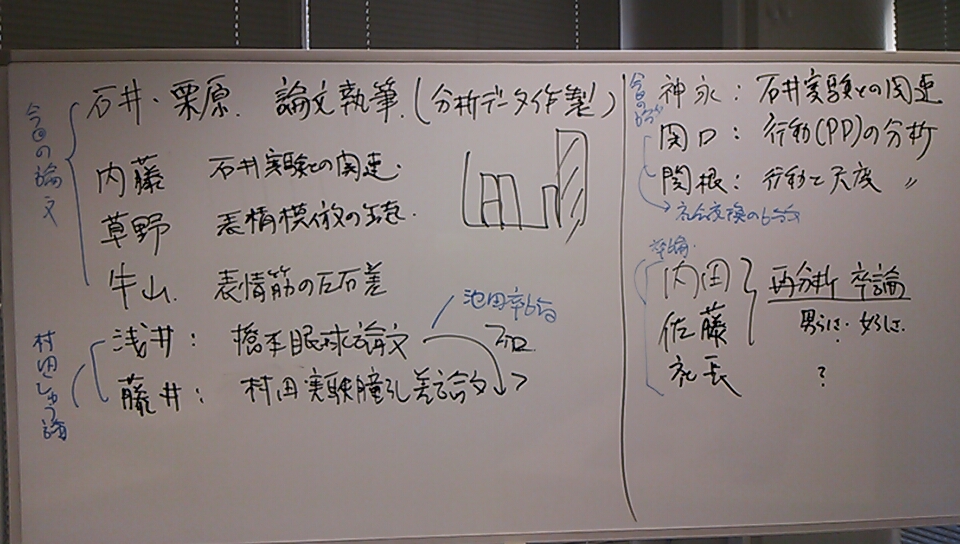 今回の論文
石井・栗原 論文執筆(分析データ作製)
内藤 石井実験との関連.
草野 表情模倣の
牛山. 表情筋の左右差
池田卒論
浅井: 橋本眼球論文
藤井: 村田実験瞳孔差論文
神永: 石井実験との関連
関口: 行動(PD)の分析
関根: 行動と尺度 〃
社会交換の
卒論
内田
佐藤
再分析 卒論
男らしさ. 女らしさ.
社長 ?